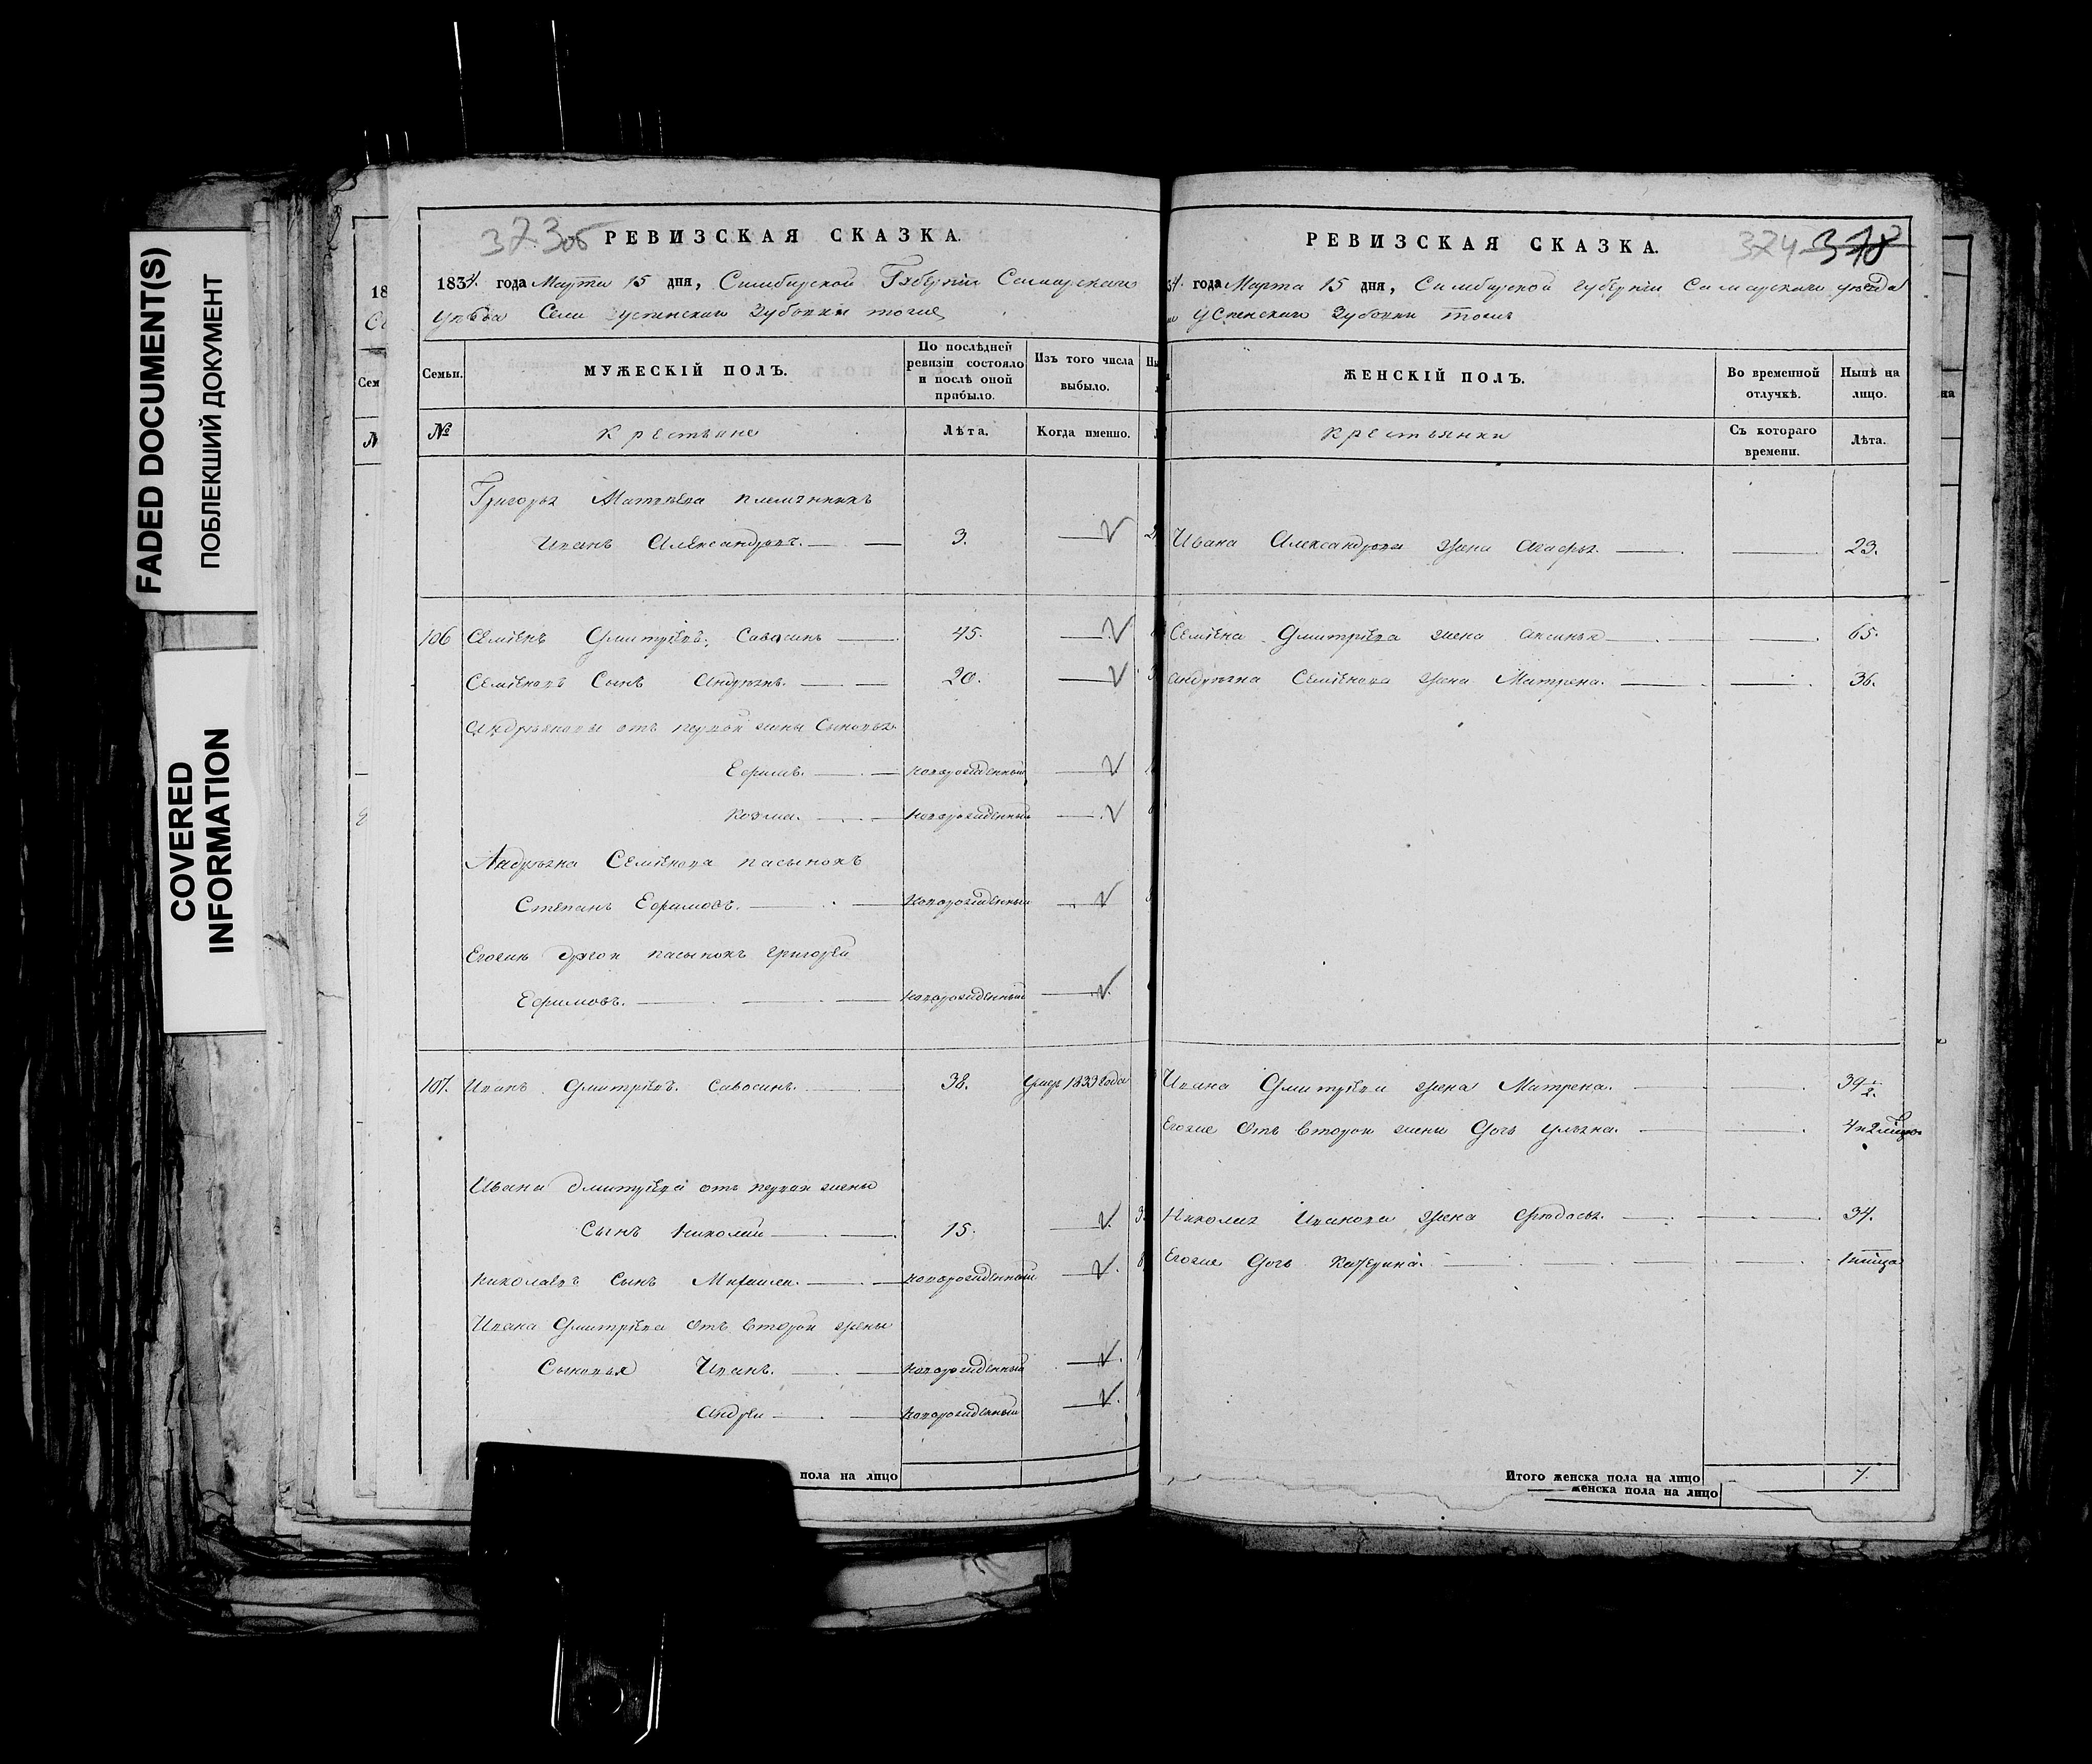 FADED DOCUMENT(S)
ПОБЛЕКШИЙ ДОКУМЕНТ
COVERED INFORMATION
373об
РЕВИЗСКАЯ СКАЗКА.
1834. года Марта 15 дня, Симбирской Губернiи Самарскаго
уѣзда Села Успенскаго Зубовки тожъ
Семьи.
МУЖЕСКIЙ ПОЛЪ.
По послѣдней ревизiи состояло и послѣ оной прибыло.
Изъ того числа выбыло.
№
Крестьяне
Лѣта.
Когда именно.
Григорья Матвѣева племянникъ
Иванъ Александровъ. 3.
106 Семiонъ Дмитрiевъ Савосинъ 45.
Семiоновъ Сынъ Андреянъ. 20.
Андреяновы отъ первой жены Сыновья
Ефимъ. новорожденный
Козма. новорожденный
Андреяна Семiонова пасынокъ
Степанъ Ефимовъ. новорожденный
Егожъ другой пасынокъ Григорей
Ефимовъ. новорожденный
107. Иванъ Дмитрiевъ Савосинъ. 38. умеръ 1833 года
Ивана Дмитрiева отъ первой жены
Сынъ Николай 15.
Николаевъ Сынъ Михаила. новорожденный
Ивана Дмитрiева Отъ второй жены
Сыновья Иванъ. новорожденный
Андрей новорожденный
пола на лицо
374
318
РЕВИЗСКАЯ СКАЗКА.
года Марта 15 дня, Симбирской губернiи Самарскаго уѣзда
Успенскаго Зубовки тожъ
ЖЕНСКIЙ ПОЛЪ.
Во временной отлучкѣ.
Нынѣ на лицо.
Крестьянки
Съ котораго времени.
Лѣта.
Ивана Александрова жена Агафья. 23.
Семiона Дмитрiева жена Аксинья 65.
Андреяна Семiонова жена Матрена. 36.
Ивана Дмитрiева жена Матрена. 39 1/2.
Егоже Отъ второй жены Дочь Ульяна.
Николая Иванова жена Федосья. 34.
Егоже Дочь Катерина.
Итого женска пола на лицо 7.
женска пола на лицо